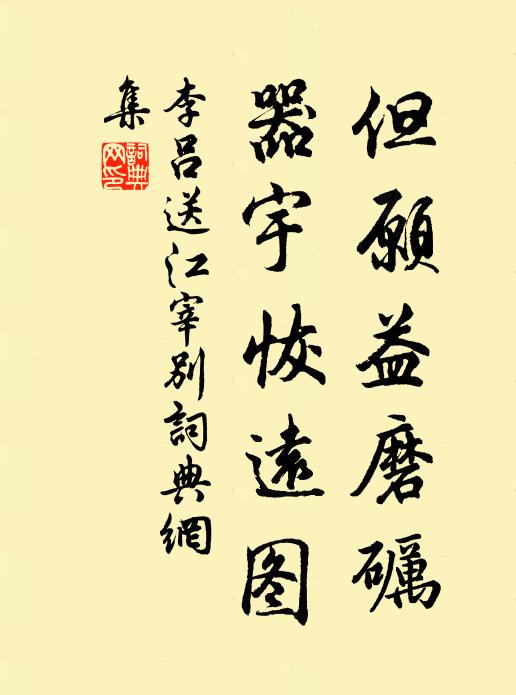 但願益磨礪
器宇恢遠图
李吕送江宰别詞典網
集
詞典網印